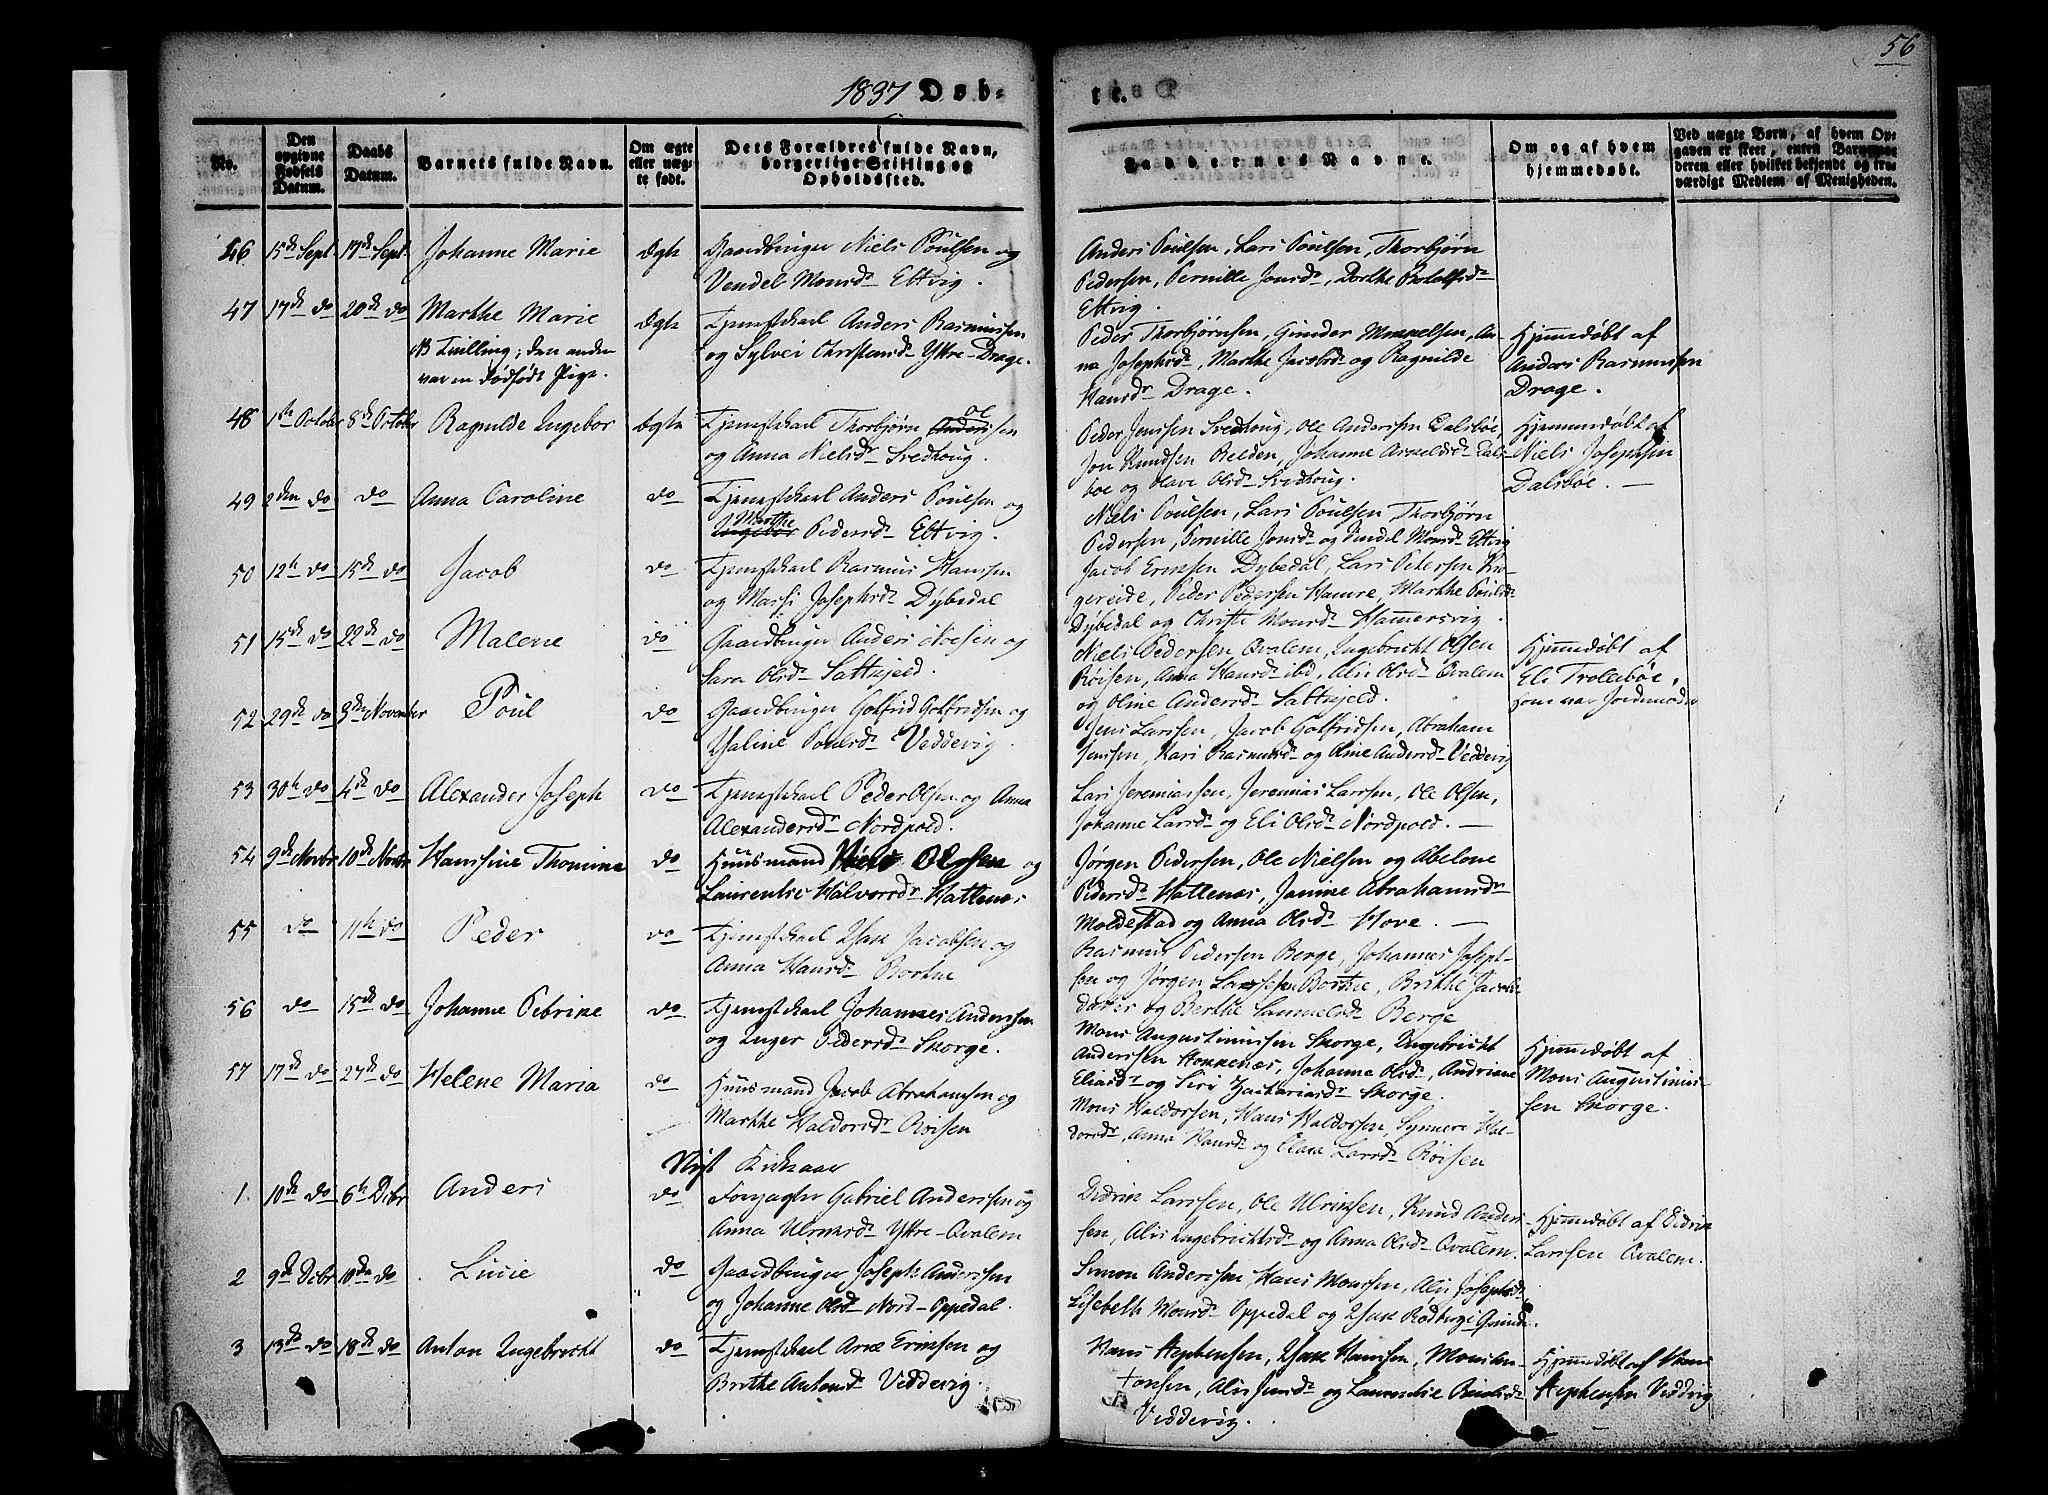 56
1837 Døb- te.
No.
Den opgivne Fødsels Datum.
Daabs Datum.
Barnets fulde Navn.
Om ægte eller uægte født.
Dets Forældres fulde Navn, borgerlige Stilling og Opholdssted.
Faddernes Navne.
Om og af hvem hjemmedøbt.
Ved uægte Børn, af hvem Opgaven er skeet, enten Barnemoderen eller hvilket bekjendt og troværdigt Medlem af Menigheden.
46 15de Sept. 17de Sept. Johanne Marie Ægte Gaardbruger Niels Poulsen og
Vendel Monsd. Eltvig.
Anders Poulsen, Lars Poulsen, Thorbjørn
Pedersen, Pernille Jonsd., Dorthe
Eltvig
47 17de do 20de do Marthe Marie Ægte Tjenestekarl Anders Rasmussen
NB Tvilling; den anden og Sylvei Christensd. Yttre-Drage.
var en dødfødt Pige.
Peder Thorbjørnsen, Gunder Mikkelsen, An-
na Josephsd., Marthe Jacobsd. og Ragnilde
Hansd. Drage.
Hjemmedøbt af
Anders Rasmussen
Drage.
48 1ste October 8de October Ragnilde Ingebor Ægte Tjenestekarl Thorbjørn Olsen
og Anna Nielsd. Svedhoug.
Peder Jenssen Svedhoug, Ole Anderssen Dalsbøe,
Jon Knudsen Relden, Johanne Arnoldsd. Dals-
boe og Olave Olsd. Svedhoug.
Hjemmedøbt af
Niels Josephsen
Dalsbøe.
49 2den do do Anna Caroline do Tjenestekarl Anders Poulsen og
Marthe Pedersd. Eltvig.
Niels Poulsen, Lars Poulsen, Thorbjørn
Pedersen, Pernille Jonsd. og Vendel Monsd. Eltvig
50 12te do 15de do Jacob do Tjenestekarl Rasmus Hanssen
og Marsi Josephsd. Dybedal
Jacob Eriksen Dybedal, Lars Petersen
gereide, Peder Pedersen Hamre, Marthe Poulsd.
Dybedal og Christi Monsd. Hamersvig.
51 15de do 22de do Malene do Gaardbruger Anders Moesen og
Sara Olsd. Sattkjeld.
Niels Pedersen Qvalem, Ingebricht Olsen
Røisen, Anna Hansd. ibd, Alis Olsd. Qvalem
og Oline Andersd. Sattkjeld.
Hjemmedøbt af
Eli Trollebøe,
som var Jordemoder
52 29de do 3die November Poul do Gaardbruger Golfrid Golfridsen og
Maline Poulsd. Veddevig.
Jens Larssen, Jacob Golfridsen, Abraham
Jenssen, Kari Rasmusd. og Oline Andersd. Veddevig
53 30te do 4de do Alexander Joseph do Tjenestekarl Peder Olsen og Anna
Alexandersd. Nordpold.
Lars Jeremiassen, Jeremias Larssen, Ole Olsen,
Johanne Larsd. og Eli Olsd. Nordpold.
54 9de Novbr 10de Novbr Hansine Thomine do Huusmand Niels Olssen og
Laurentze Halvorsd. Hattenæs
Jørgen Pedersen, Ole Nielsen og Abelone
Pedersd. Hattenæs, Janine Abrahamsd.
Moldestad og Anna Olsd. Hove.
55 do 11te do Peder do Tjenestekarl Isak Jacobsen og
Anna Hansd. Borthne
Rasmus Pedersen Berge, Johannes Joseph-
sen og Jørgen Larssen Borthne, Brithe Jacobs-
datter og Berthe Samuelsd. Berge
56 do 15de do Johanne Pebrine do Tjenestekarl Johannes Anderssen
og Inger Pedersd. Skorge.
Mons Augustinussen Skorge, Ingebricht
Anderssen Hoknenæs, Johanne Olsd., Andriane
Eliasd. og Siri Zachariasd. Skorge.
Hjemmedøbt af
Mons Augustinus-
sen Skorge.
57 17de do 27de do Helene Maria do Huusmand Jacob Abrahamsen og
Marthe Haldorsd. Røisen
Mons Haldorsen, Hans Haldorsen, Synneve Hal-
dorsd., Anna Hansd. og Elara Larsd. Røisen
Nyt Kirkeaar
1. 10de do 6te Dcbr Anders do Forpagter Gabriel Anderssen og
Anna Ulriksd. Yttre-Qvalem
Didrik Larssen, Ole Ulriksen, Knud Anders-
sen, Alis Ingebrichtsd. og Anna Olsd. Qvalem.
Hjemmedøbt af Didrik
Larssen Qvalem.
2 9de Dcbr 10de do Lucie do Gaardbruger Joseph Anderssen
og Johanne Olsd. Nord-Oppedal.
Simon Anderssen, Hans Monssen, Alis Josephsd.,
Lisebeth Monsd. Oppedal og Isak Rødberg Grinde.
3 13de do 18de do Anton Ingebricht do Tjenestekarl Arne Eriksen og
Brithe Antonsd. Veddevig.
Hans Stephensen, Isak Hanssen, Mons
tonsen, Alis Jensd. og Laurentse Veddevig.
Hjemmedøbt af Hans
Stephensen Veddvig